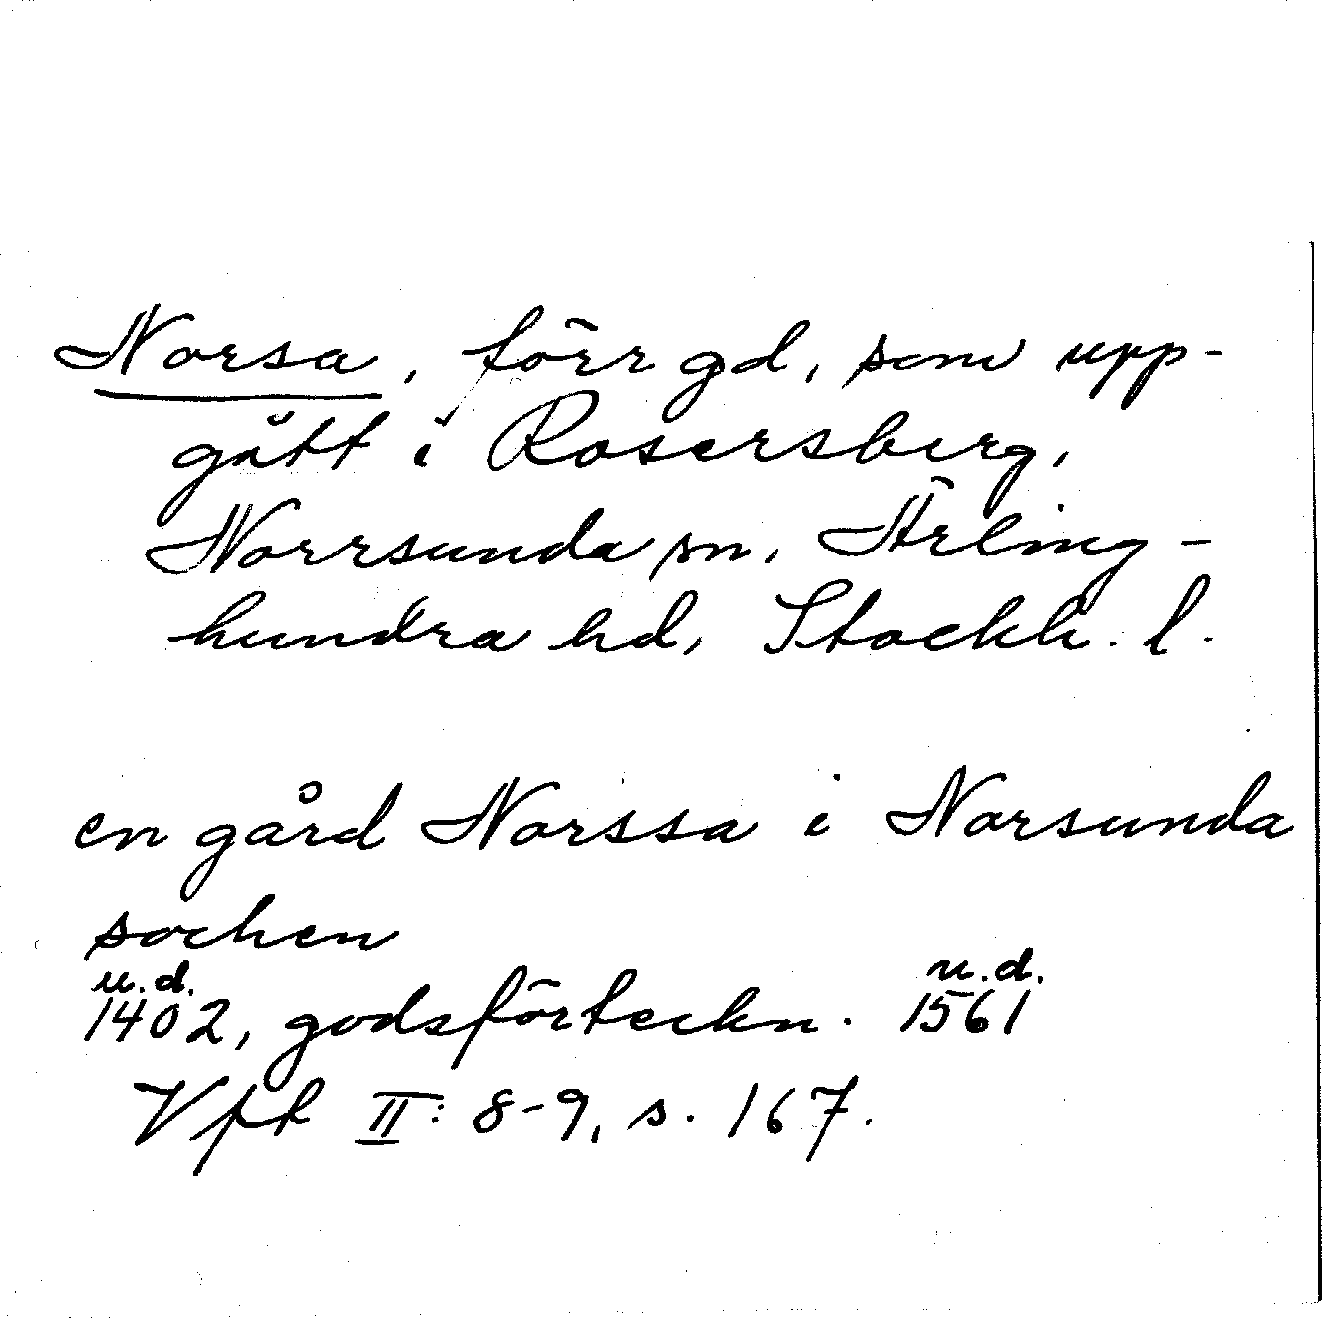 Norsa, förr gd, som upp-
gått i Rosersberg,
Norrsunda sn, Ärling-
hundra hd, Stockh. l.
en gård Norssa i Norsunda
sochen
u.d. u.d.
1402, godsförteckn. 1561
Vft II: 8-9, s. 167.